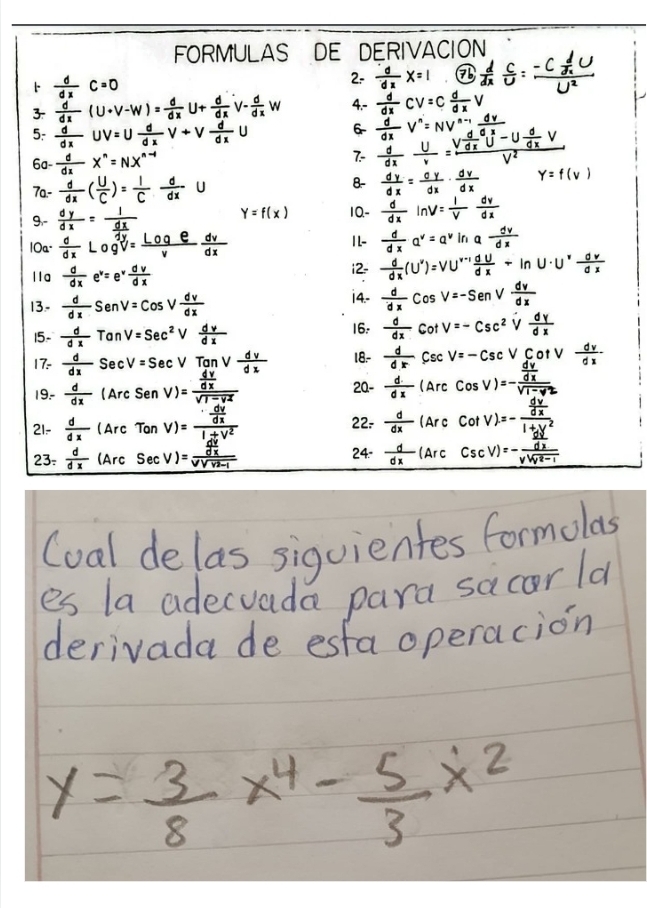 FORMULAS DE DERIVACION
1- d/dx C=0
2- d/dx X=1 (7b) d/dx C/U = -C d/dx U / U²
3- d/dx (U+V-W) = d/dx U + d/dx V - d/dx W
4- d/dx CV = C d/dx V
5- d/dx UV = U d/dx V + V d/dx U
6- d/dx Vⁿ = NVⁿ⁻¹ dv/dx
6a- d/dx Xⁿ = NXⁿ⁻¹
7- d/dx U/v = V d/dx U - U d/dx V / V²
7a- d/dx (U/C) = 1/C d/dx U
8- dy/dx = dy/dx · dv/dx Y=f(v)
9- dy/dx = 1 / dx/dy Y=f(x)
10- d/dx lnV = 1/V dv/dx
10a- d/dx LogV = Log e / v dv/dx
11- d/dx aᵛ = aᵛ ln a dv/dx
11a d/dx eᵛ = eᵛ dv/dx
12- d/dx (Uᵛ) = VUᵛ⁻¹ dU/dx + ln U·Uᵛ dv/dx
13- d/dx Sen V = Cos V dv/dx
14- d/dx Cos V = -Sen V dv/dx
15- d/dx Tan V = Sec² V dv/dx
16- d/dx Cot V = - Csc² V dv/dx
17- d/dx Sec V = Sec V Tan V dv/dx
18- d/dx Csc V = -Csc V Cot V dv/dx
19- d/dx (Arc Sen V) = dv/dx / √1-v²
20- d/dx (Arc Cos V) = - dv/dx / √1-v²
21- d/dx (Arc Tan V) = dv/dx / 1+V²
22- d/dx (Arc Cot V) = - dv/dx / 1+V²
23- d/dx (Arc Sec V) = dv/dx / V√V²-1
24- d/dx (Arc Csc V) = - dv/dx / V√V²-1
Cual de las siguientes formulas
es la adecuada para sacar la
derivada de esta operación
y = 3/8 x⁴ - 5/3 x²